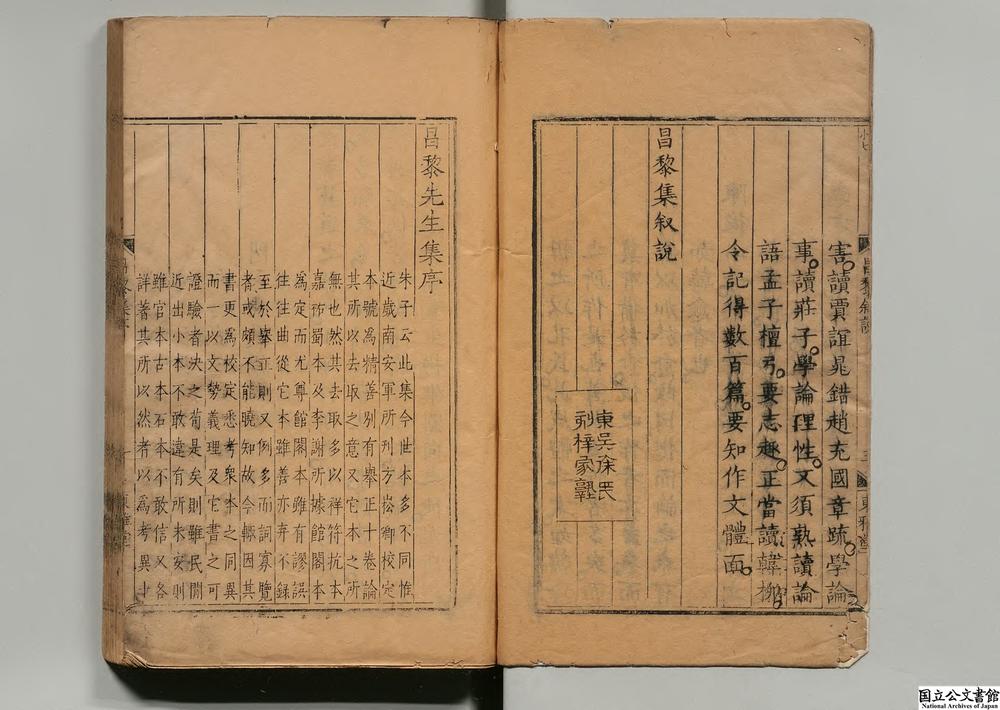 害讀賈誼晁錯趙充國章疏學論
事讀莊子學論理性又須熟讀論
語孟子檀弓要志趣正當讀韓柳
令記得數百篇要知作文體面
昌黎集叙說
東吳徐氏
刻梓家塾
昌黎叙說
三
東雅堂
昌黎先生集序
朱子云此集今世本多不同惟
近歲南安軍所刊方崧卿校定
本號為精善别有舉正十卷論
其所以去取之意又它本之所
無也然其去取多以祥符杭本
嘉祐蜀本及李謝所據館閣本
為定而尤尊館閣本雖有謬誤
往往曲從它本雖善亦弃不錄
至於舉正則又例多而詞寡覽
者或頗不能曉知故今輒因其
書更為校定悉考衆本之同異
而一以文勢義理及它書之可
證驗者決之苟是矣則雖民間
近出小本不敢違有所未安則
雖官本古本石本不敢信又各
詳著其所以然者以為考異十
東雅堂
國立公文書館
National Archives of Japan